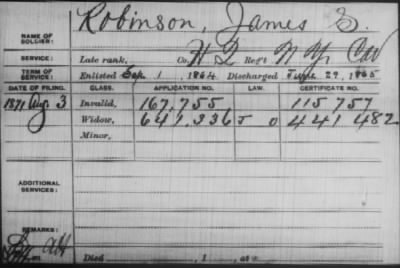 NAME OF SOLDIER: Robinson, James
SERVICE: Late rank, Co. H Reg't N Y Cav
TERM OF SERVICE: Enlisted Sep. 1, 1864 Discharged June 29, 1865
DATE OF FILING. CLASS. APPLICATION NO. LAW. CERTIFICATE NO.
1871 Aug 3 Invalid, 167,755 115,757
Widow, 641,336 441,482
Minor,
ADDITIONAL SERVICES:
REMARKS:
Died , 1 , at